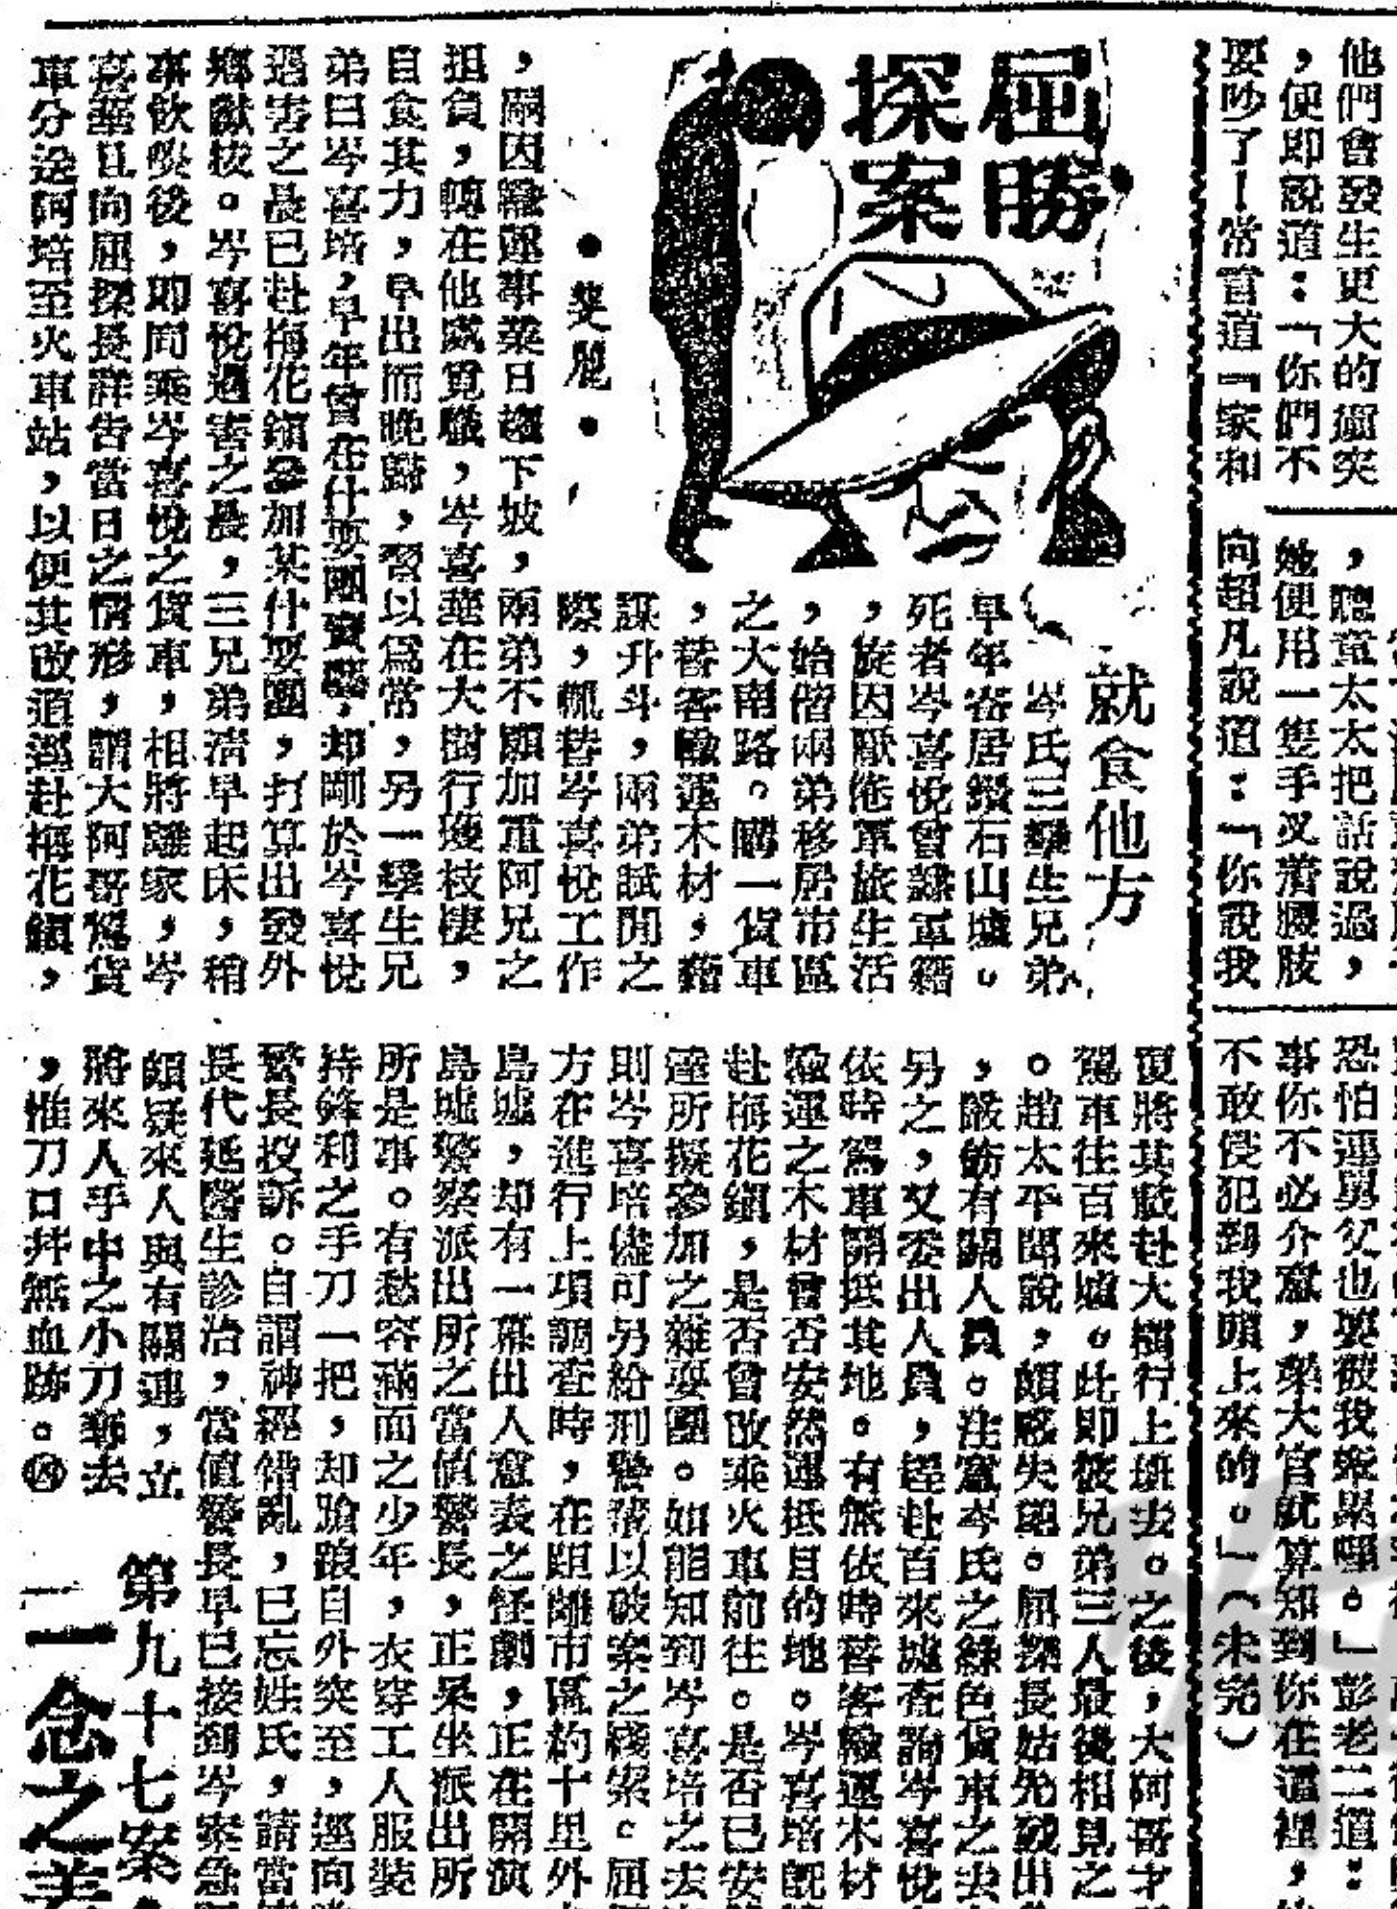 他們會發生更大的衝突
，便即說道：「你們不
要吵了！常言道『家和
，聽童太太把話說過，
她便用一隻手叉着腰肢
向超凡說道：「你說我
恐怕連舅父也要被我牽累哩。」彭老二道：
事你不必介意，榮大官就算知到你在這裡，
不敢侵犯到我頭上來的。」（未完）
屈勝
探案
●斐麗●
就食他方
岑氏三孿生兄弟，
早年寄居鑽石山墟。
死者岑喜悅曾隸軍籍
，旋因厭倦軍旅生活
，始偕兩弟移居市區
之大南路。購一貨車
，替客輸運木材，藉
謀升斗，兩弟試開之
際，佩替岑喜悅工作
，嗣因輸運事業日趨下坡，兩弟不願加重阿兄之
担負，轉在他處覓職，岑喜華在大樹行獲枝棲，
自食其力，早出而晚歸，習以爲常，另一孿生兄
弟曰岑喜培，早年曾在什耍團賣藝，却剛於岑喜悅
遇害之晨已赴梅花鎮參加某什耍團，打算出發外
鄉獻技。岑喜悅遇害之晨，三兄弟清早起床，稍
事飲喫後，即同乘岑喜悅之貨車，相將離家，岑
喜華且向屈探長詳告當日之情形，謂大阿哥駕貨
車分送阿培至火車站，以便其改道逕赴梅花鎮，
復將其載赴大樹行上班去。之後，大阿哥才
駕車往百來墟。此即彼兄弟三人最後相見之
。趙太平聞說，頗感失望。屈探長姑先發出
，嚴飭有關人員。注意岑氏之綠色貨車之去
另之，又委出人員，趕赴百來墟查詢岑喜悅
依時駕車開抵其地。有無依時替客輸運木材
輸運之木材曾否安然運抵目的地。岑喜培旣
赴梅花鎮，是否曾改乘火車前往。是否已安
達所擬參加之雜耍團。如能知到岑喜培之去
則岑喜培儘可另給刑警資以破案之綫索。屈
方在進行上項調查時，在距離市區約十里外
島墟，却有一幕出人意表之怪劇，正在開演
島墟警察派出所之當值警長，正呆坐派出所
所是事。有愁容滿面之少年，衣穿工人服裝
持鋒利之手刀一把，却蹌踉自外突至，逕向
警長投訴。自謂神經錯亂，已忘姓氏，請當
長代延醫生診治，當值警長早已接到岑案急
頗疑來人與有關連，立
將來人手中之小刀奪去
，惟刀口幷無血跡。
第九十七案
一念之差